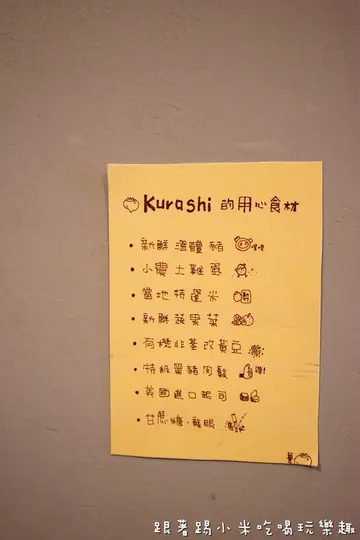 Kurashi 的用心食材
• 新鮮溫體豬
• 小農土雞蛋
• 當地特選米
• 新鮮蔬果菜
• 有機非基改黃豆
• 特級豬肉鬆
• 美國進口起司
• 甘蔗糖、龍眼
跟著踢小米吃喝玩樂趣